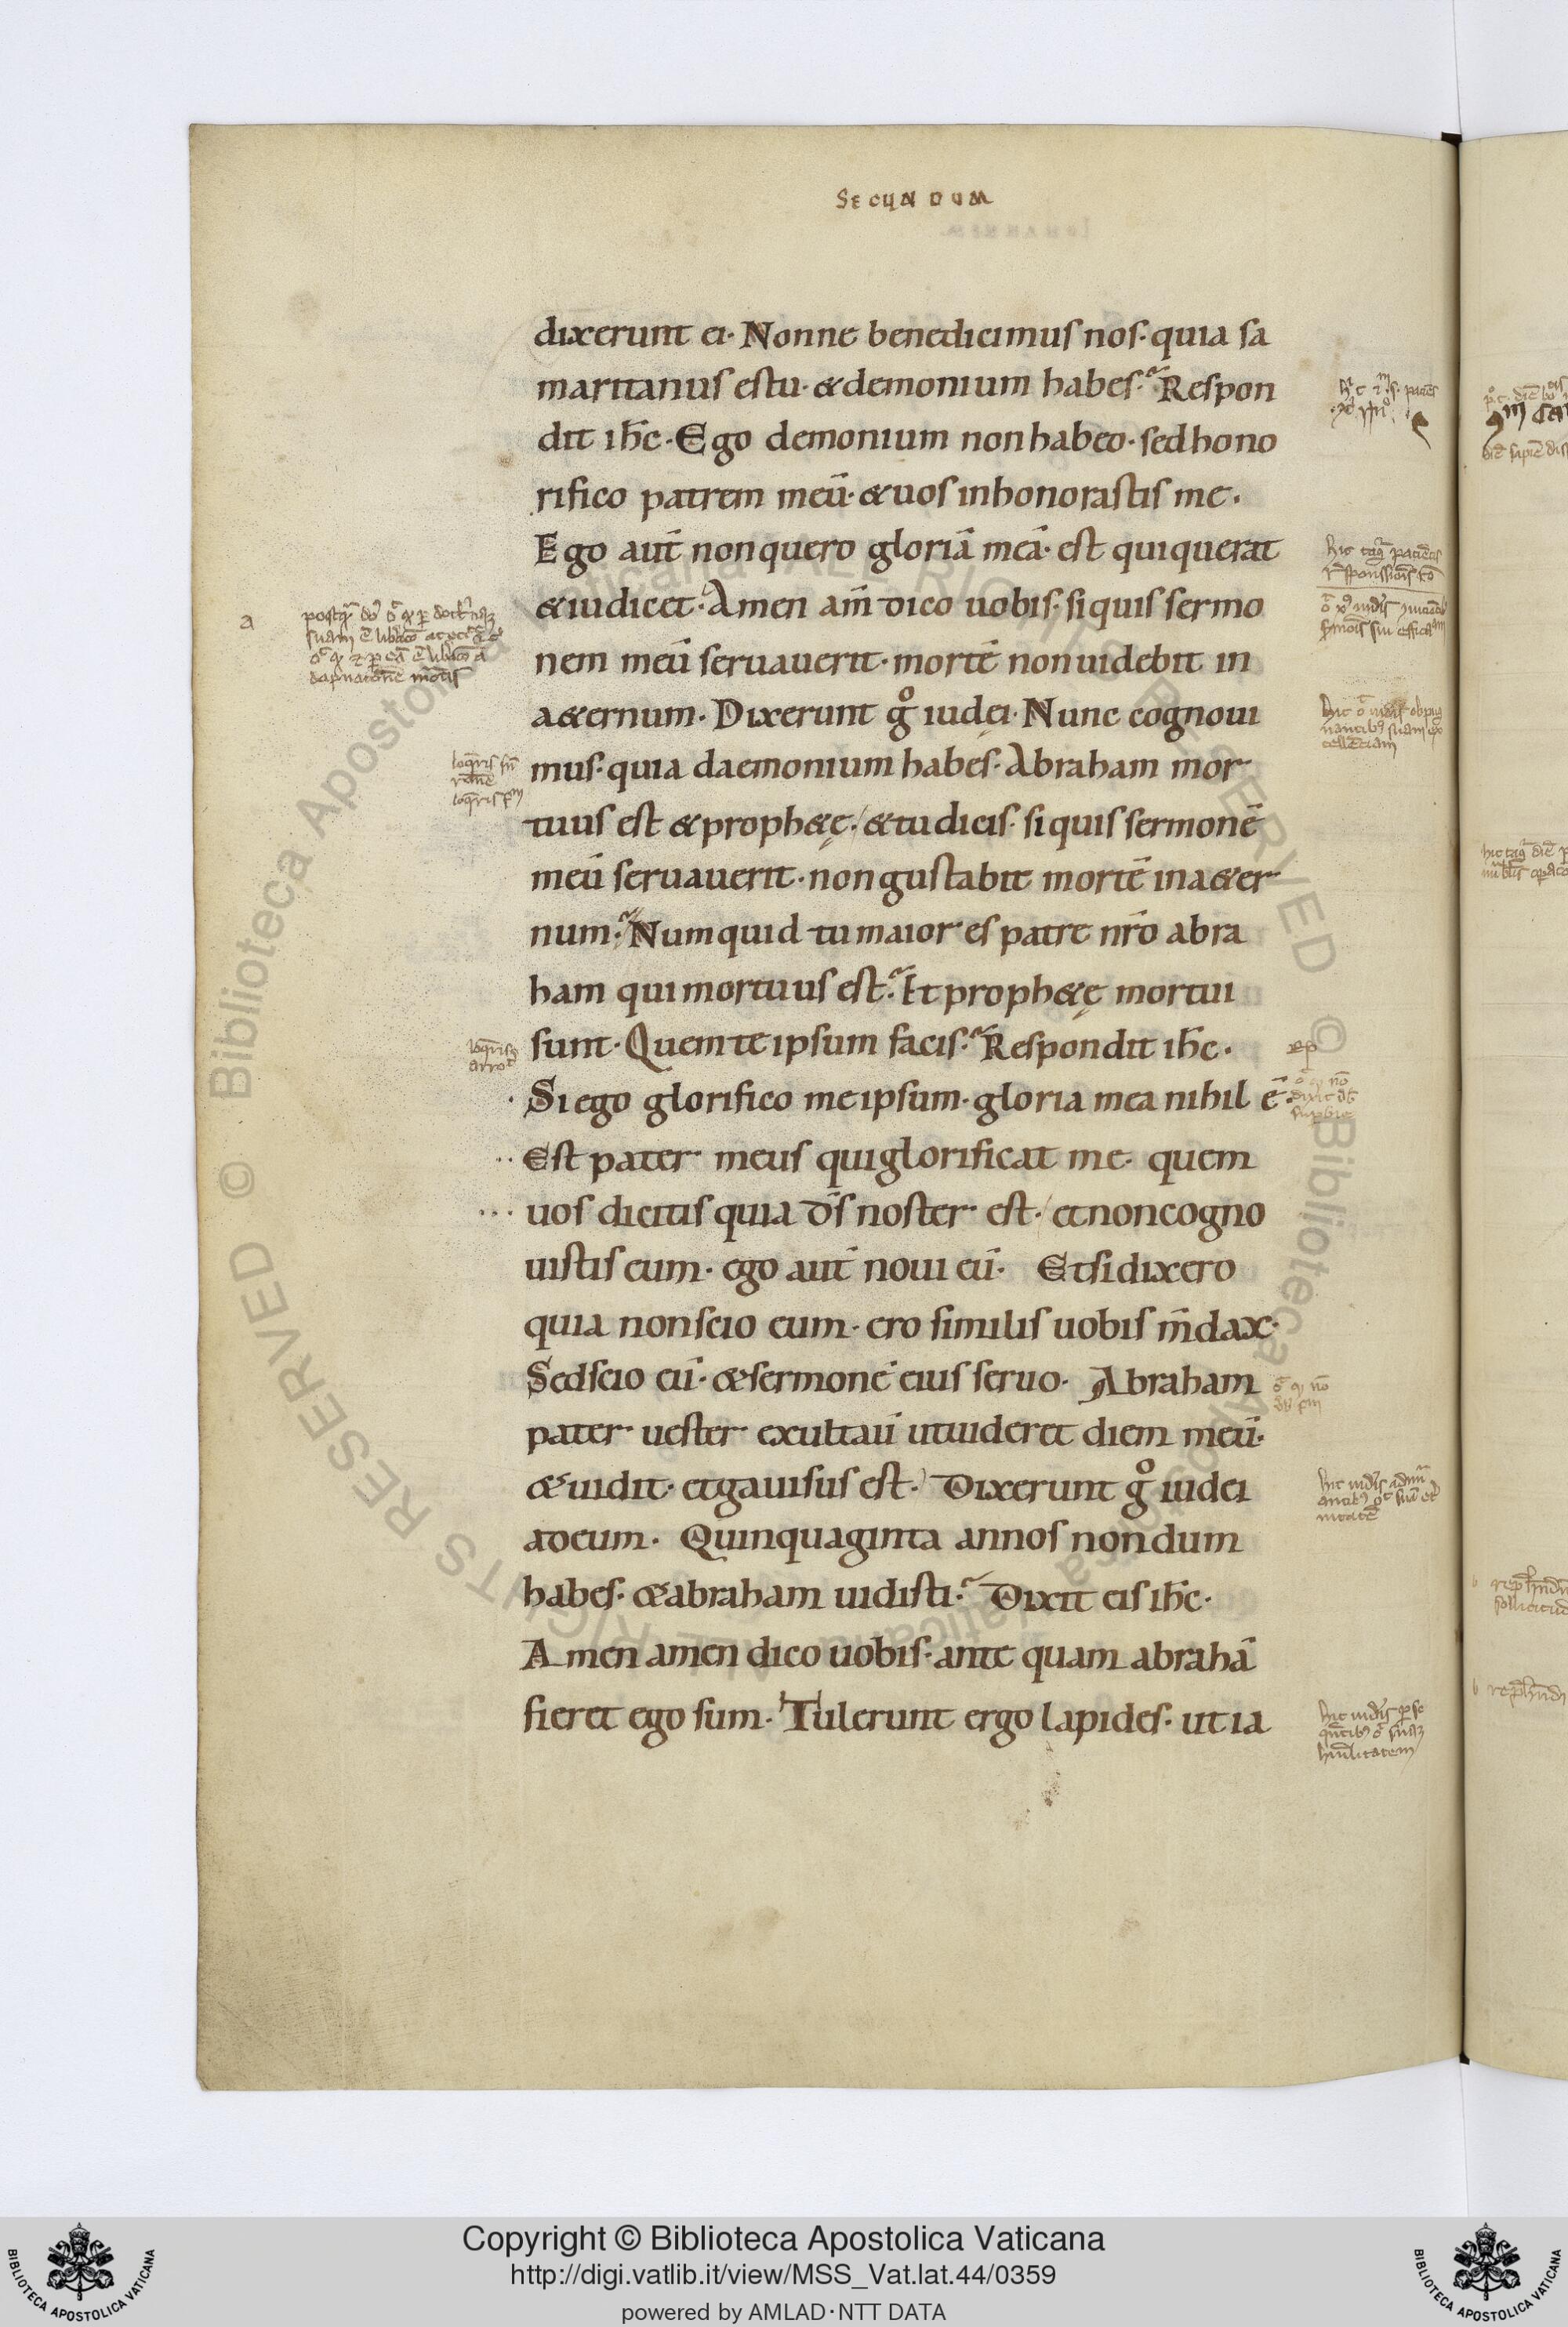 SECUNDUM
dixerunt ei· Nonne benedicimus nos· quia sa
maritanus es tu· & demonium habes· Respon
dit ih̄c· Ego demonium non habeo· sed hono
rifico patrem meū· & uos inhonorastis me·
Ego aut̄ non quero gloriā meā· est qui querat
& iudicet· Amen am̄ dico uobis· si quis sermo
nem meū seruauerit· mortē non uidebit in
a&ernum· Dixerunt g̊ iudei· Nunc cognoui
mus· quia daemonium habes· Abraham mor
tuus est & proph&ę· & tu dicis· si quis sermonē
meū seruauerit· non gustabit mortē in a&er
num· Numquid tu maior es patre nr̄o abra
ham qui mortuus est· Et proph&ę mortui
sunt· Quem te ipsum facis· Respondit ih̄c·
Si ego glorifico me ipsum· gloria mea nihil ē·
Est pater meus qui glorificat me· quem
uos dicitis quia d̄s noster est· et non cogno
uistis eum· ego aut̄ noui eū· Et si dixero
quia non scio eum· ero similis uobis m̄dax·
Sed scio eū· & sermonē eius seruo· Abraham
pater uester exultauī ut uideret diem meū·
& uidit· et gauisus est· Dixerunt g̊ iudei
ad eum· Quinquaginta annos nondum
habes· & abraham uidisti· Dixit eis ih̄c·
Amen amen dico uobis· ante quam abrahā
fieret ego sum· Tulerunt ergo lapides· ut ia
a
rep
Copyright © Biblioteca Apostolica Vaticana
http://digi.vatlib.it/view/MSS_Vat.lat.44/0359
powered by AMLAD·NTT DATA
BIBLIOTECA APOSTOLICA VATICANA
BIBLIOTECA APOSTOLICA VATICANA